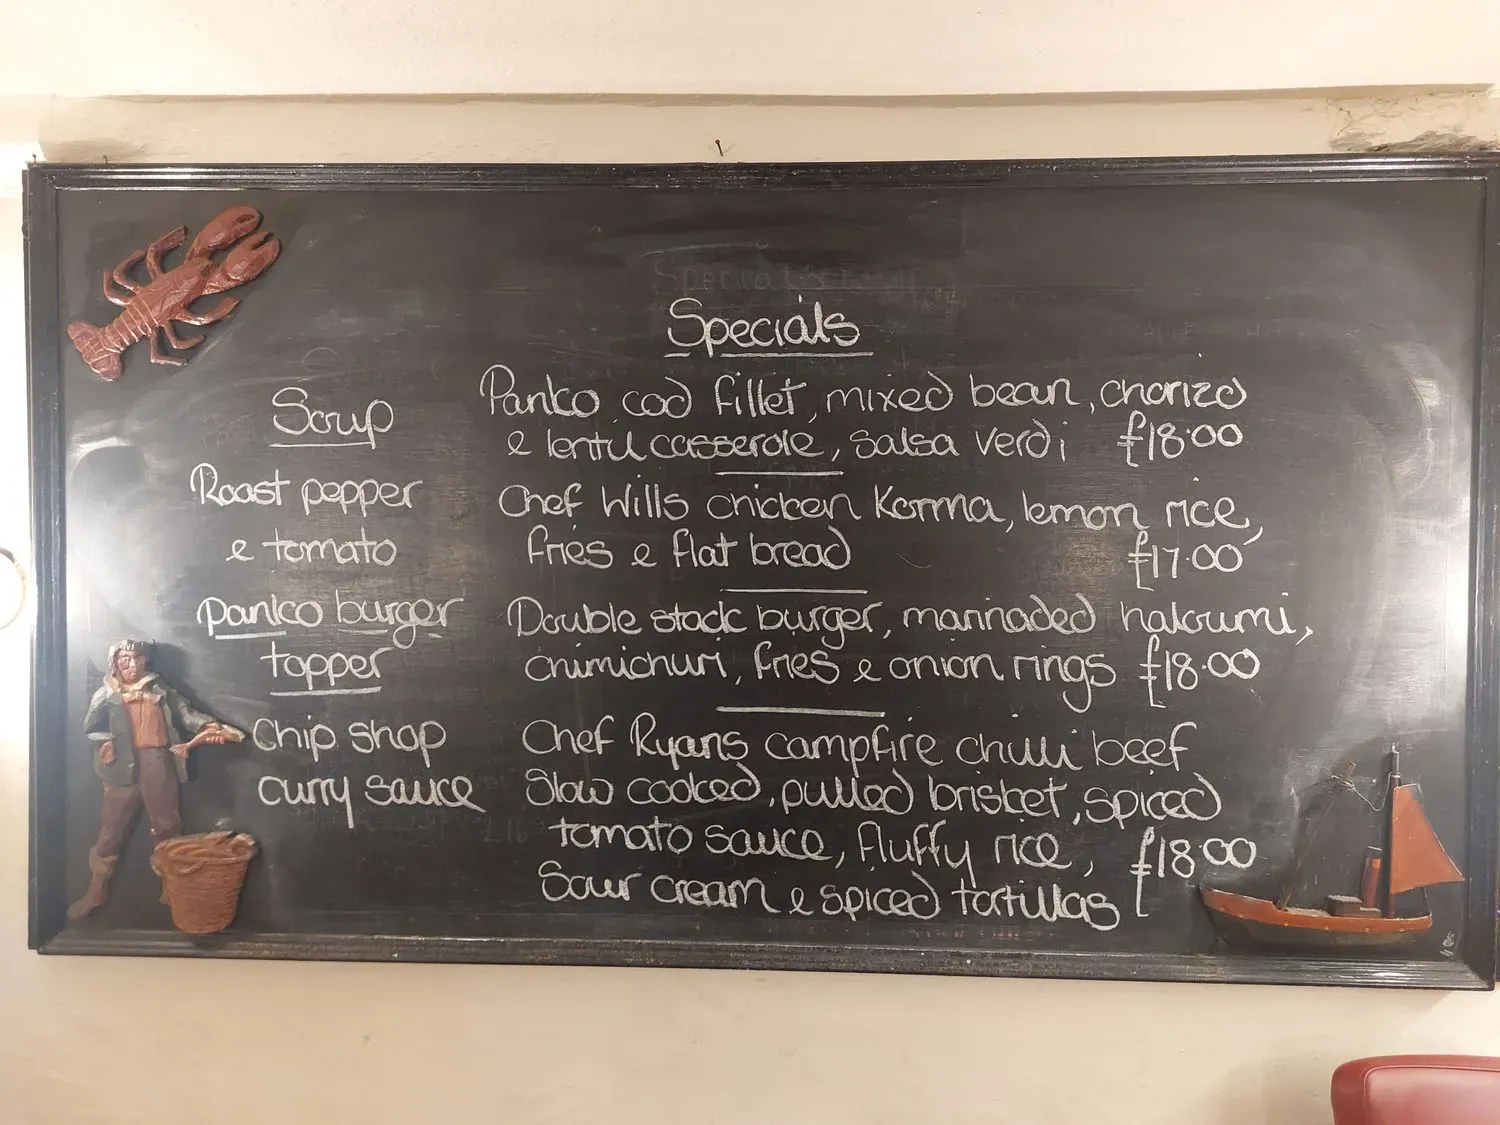 Specials
Soup
Roast pepper
e tomato
Panko burger
topper
Chip shop
curry sauce
Panko cod fillet, mixed bean, chorizo
e lentil casserole, salsa verdi £18.00
Chef Wills chicken Korma, lemon rice,
fries e flat bread £17.00
Double stack burger, marinaded haloumi,
chimichuri, fries e onion rings £18.00
Chef Ryans campfire chilli beef
Slow cooked, pulled brisket, spiced
tomato sauce, fluffy rice, £18.00
Sour cream e spiced tortillas